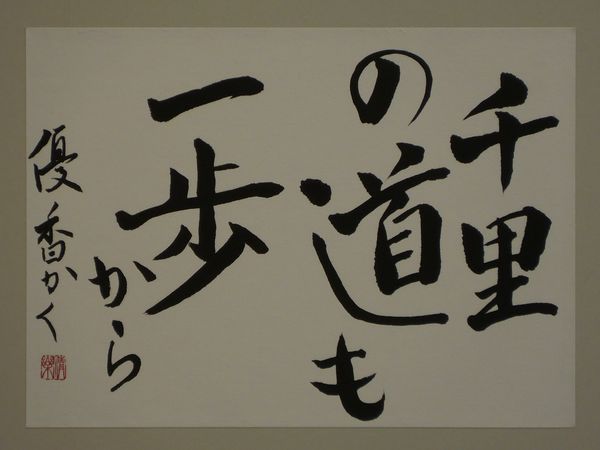 千里
の道も
一歩
から
優香かく